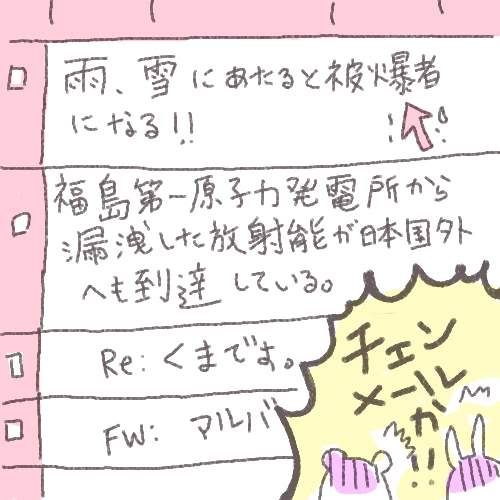 雨、雪にあたると被爆者
になる!!
福島第一原子力発電所から
漏洩した放射能が日本国外
へも到達している。
Re: くまです。
FW: マルバ
チェン
メール
か!!